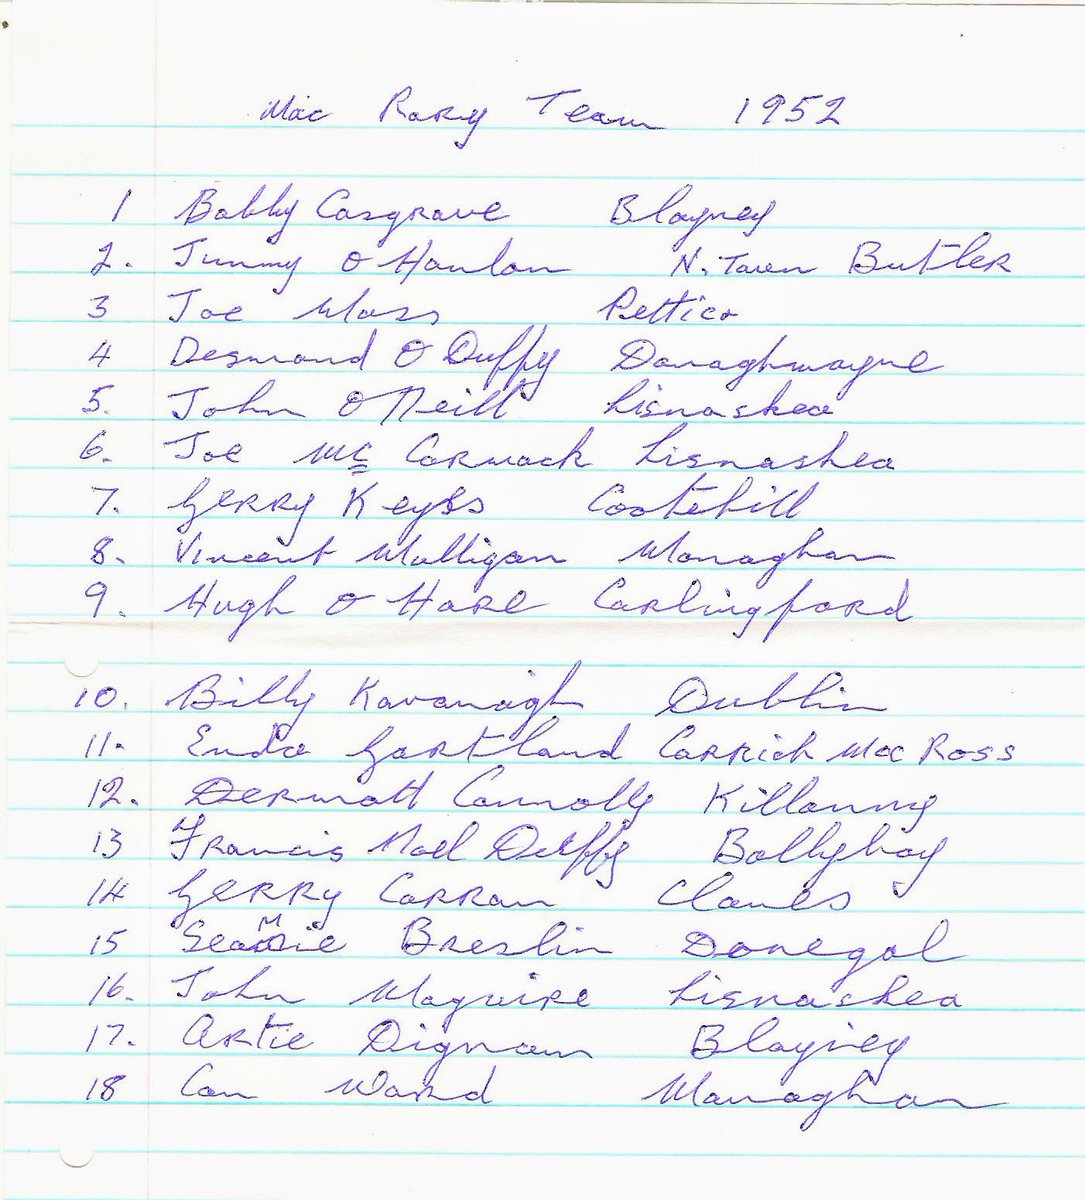 Mac Rory Team 1952
1 Bobby Cosgrave Blayney
2. Jimmy O Hanlon N. Town Butler
3 Joe Moss Pettigo
4 Desmond O Duffy Donaghmoyne
5. John O Neill Lisnaskea
6. Joe Mc Cormack Lisnaskea
7. Gerry Keyes Cootehill
8. Vincent Mulligan Monaghan
9. Hugh O Hare Carlingford
10. Billy Kavanagh Dublin
11. Enda Gartland Carrick Mac Ross
12. Dermott Connolly Killanny
13 Francis Noel Duffy Ballybay
14 Gerry Curran Clones
15 Seamie Breslin Donegal
16. John Maguire Lisnaskea
17. Artie Dignam Blayney
18 Con Ward Monaghan